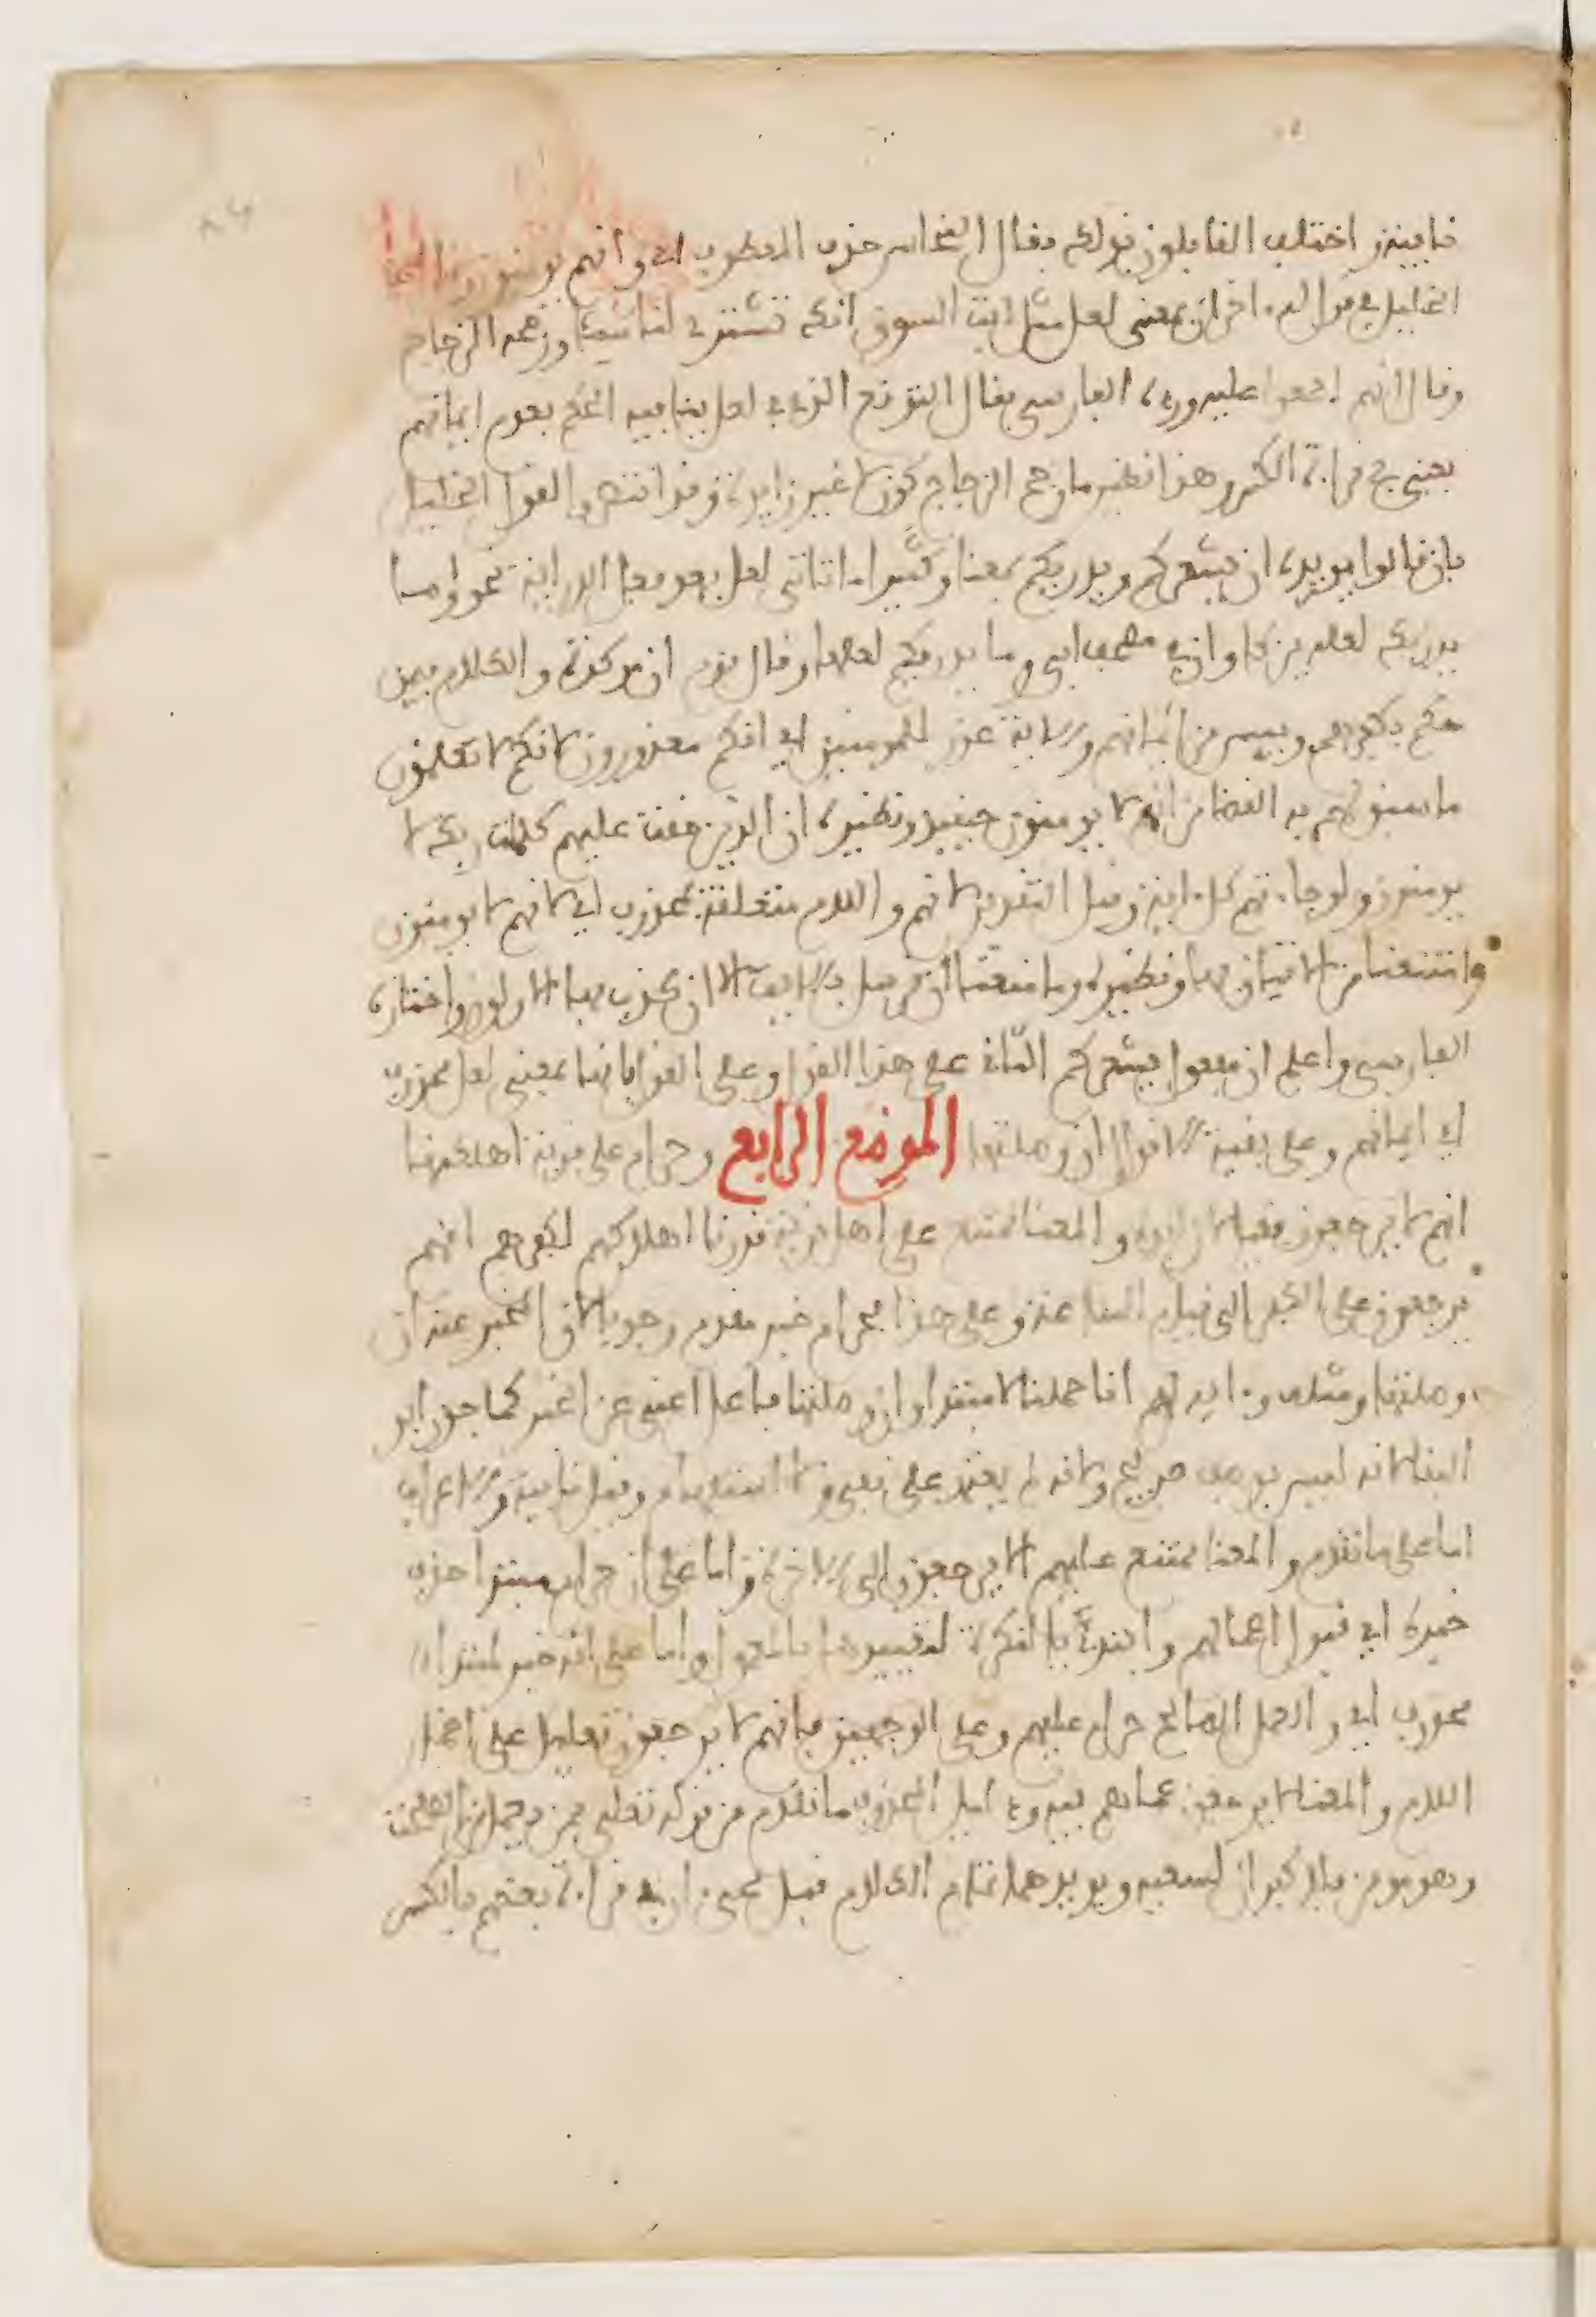 فاييين واختلف القايلون بذلك فقال النحاس حذف المعطوف اي وانهم يومنون وقال
الخليل في قول له اخر ان بمعنى لعل مثل ايت السوق انك تشتري لنا شيئا ورجحه الزجاج
وقال انهم اجمعوا عليه ورده الفارسي فقال التوقع الذي في لعل ينافيه الحكم بعدم ايمانهم
يعني في قراءة الكسر وهذا نظير ما رجح الزجاج كون لا غير زايدة وقد انتصروا لقول الخليل
بان قالوا يويده ان يشعركم ويدريكم بمعنا وكثيرا ما تاتي لعل بعد فعل الدراية نحو وما
يدريك لعله يزكا وان في مصحف ابي وما يدريكم لعلها وقال قوم ان موكدة والكلام فيمن
حكم بكفرهم وييس من ايمانهم والاية عذر للمومنين اي انكم معذورون لانكم لا تعلمون
ما سبق لهم به القضا من انهم لا يومنون حينيذ ونظيره ان الذين حقت عليهم كلمت ربك لا
يومنون ولو جاءتهم كل اية وقيل التقدير لانهم واللام متعلقة بمحذوف اي لانهم لا يومنون
وامتنعنا من الاتيان بها ونظيره وما منعنا ان نرسل بالايت الا ان كذب بها الاولون واختاره
الفارسي واعلم ان مفعول يشعركم الثاني على هذا القول وعلى القول بانها بمعنى لعل محذوف
اي ايمانهم وعلى بقية الاقوال ان وصلتها الموضع الرابع وحرام على قرية اهلكنها
انهم لا يرجعون فقيل لا زايدة والمعنا ممتنع على اهل قرية قدرنا اهلاكهم لكفرهم انهم
يرجعون على الكفر الى قيام الساعة وعلى هذا فحرام خبر مقدم وجوبا لان المخبر عنه ان
وصلتها ومثله وءاية لهم انا حملنا لا مبتدا وان وصلتها فاعل اغنى عن الخبر كما جوز ابو
البقا لانه ليس بوصف صريح ولانه لم يعتمد على نفي ولا استفهام وقيل نافية والاعراب
اما على ما تقدم والمعنا ممتنع عليهم الا يرجعون الى الاخرة واما على ان حرام مبتدا حذف
خبره اي قبول اعمالهم وابتدئ بالنكرة لتقييدها بالمعمول واما على انه خبر لمبتدا
محذوف اي والعمل الصالح حرام عليهم وعلى الوجهين فانهم لا يرجعون تعليل على اضمار
اللام والمعنا لا يرجعون عما هم فيه ودليل المحذوف ما تقدم من قوله تعلى فمن يعمل من الصلحت
وهو مومن فلا كفران لسعيه ويويدهما تمام الكلام قبل مجيء ان في قراءة بعضهم بالكسر